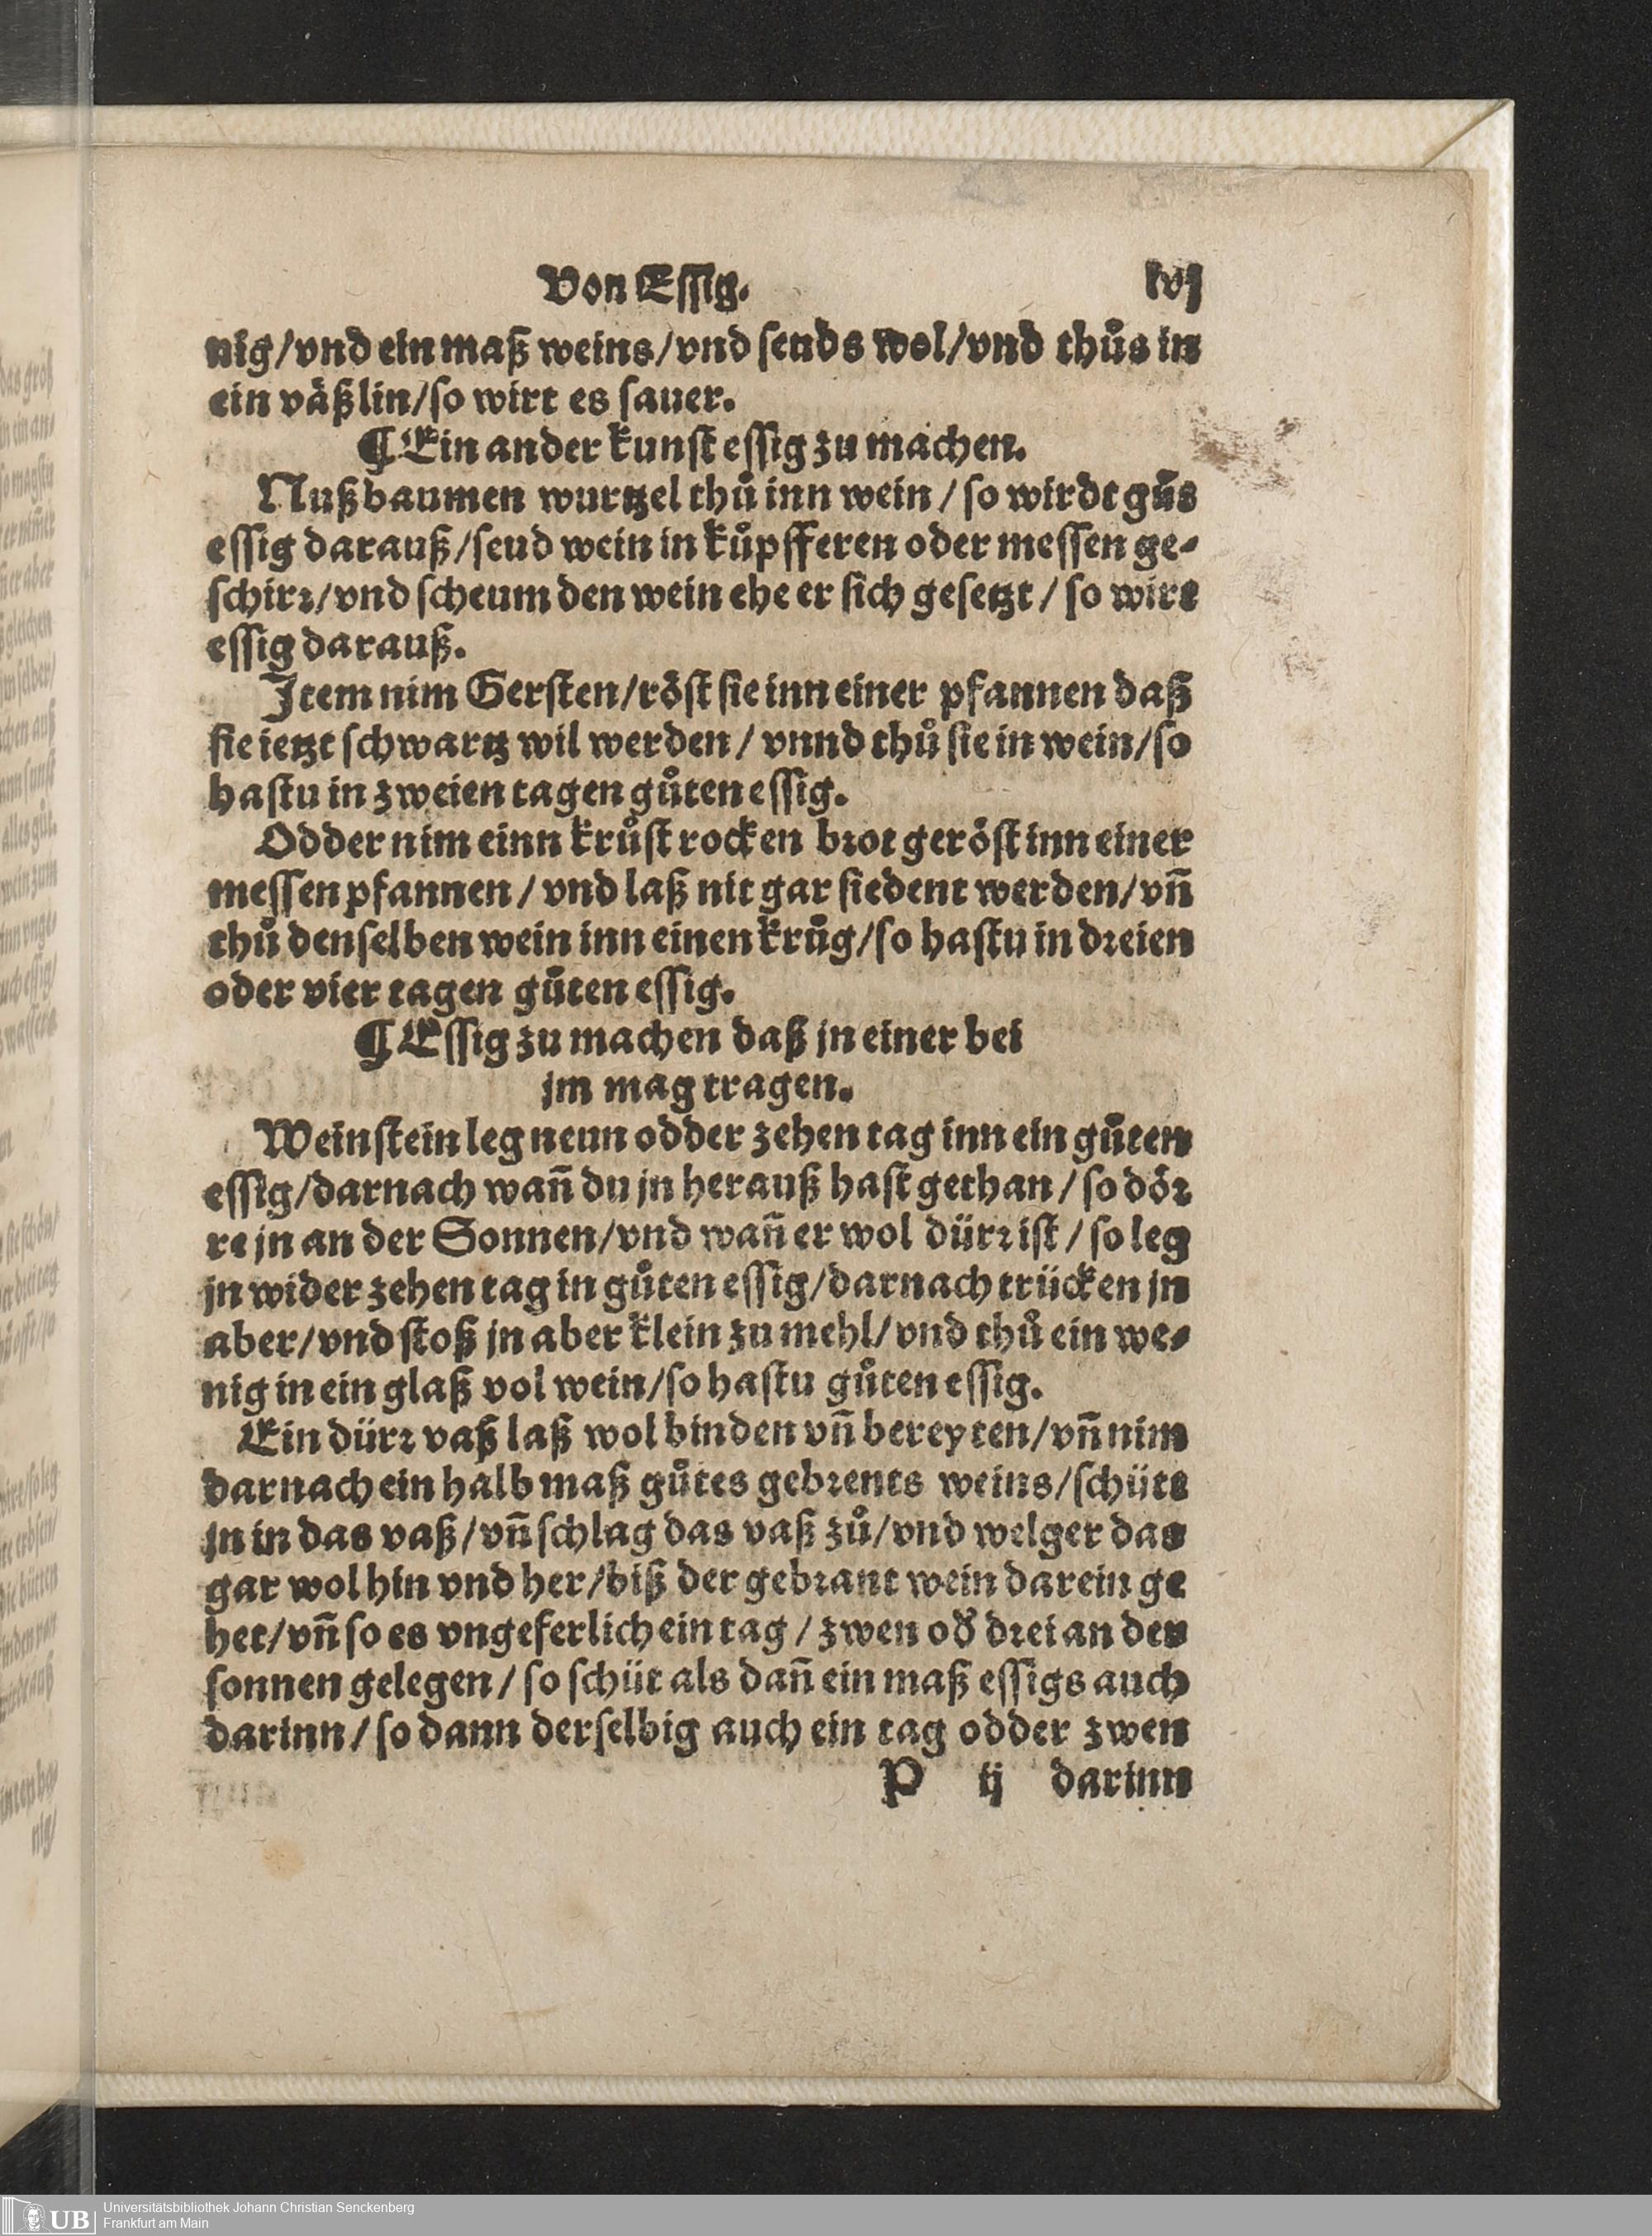 Von Eſſig. lvj
nig/vnd ein maß weins/vnd ſeuds wol/vnd thůs in
ein väßlin/ſo wirt es ſauer.
¶ Ein ander kunſt eſſig zu machen.
Nußbaumen wurtzel thů inn wein / ſo wirdt gůs
eſſig darauß/ſeud wein in kůpfferen oder meſſen ge⸗
ſchirꝛ/vnd ſcheum den wein ehe er ſich geſetzt / ſo wirt
eſſig darauß.
Jtem nim Gerſten/röſt ſie inn einer pfannen daß
ſie ietzt ſchwartz wil werden / vnnd thů ſie in wein/ſo
haſtu in zweien tagen gůten eſſig.
Odder nim einn krůſt rocken bꝛot geröſt inn einer
meſſen pfannen / vnd laß nit gar ſiedent werden/vñ
thů denſelben wein inn einen krůg/ſo haſtu in dꝛeien
oder vier tagen gůten eſſig.
¶ Eſſig zu machen daß jn einer bei
jm mag tragen.
Weinſtein leg neun odder zehen tag inn ein gůten
eſſig/darnach wañ du jn herauß haſt gethan / ſo döꝛ
re jn an der Sonnen/vnd wañ er wol dürꝛ iſt / ſo leg
jn wider zehen tag in gůten eſſig/darnach trücken jn
aber/vnd ſtoß jn aber klein zu mehl/vnd thů ein we⸗
nig in ein glaß vol wein/ſo haſtu gůten eſſig.
Ein dürꝛ vaß laß wol binden vñ bereyten/vñ nim
darnach ein halb maß gůtes gebꝛents weins/ſchüts
jn in das vaß/vñ ſchlag das vaß zů/vnd welger das
gar wol hin vnd her/biß der gebꝛant wein darein ge
het/vñ ſo es vngeferlich ein tag / zwen od̕ dꝛei an der
ſonnen gelegen / ſo ſchüt als dañ ein maß eſſigs auch
darinn / ſo dann derſelbig auch ein tag odder zwen
P ij darinn
Universitätsbibliothek Johann Christian Senckenberg
Frankfurt am Main
UB